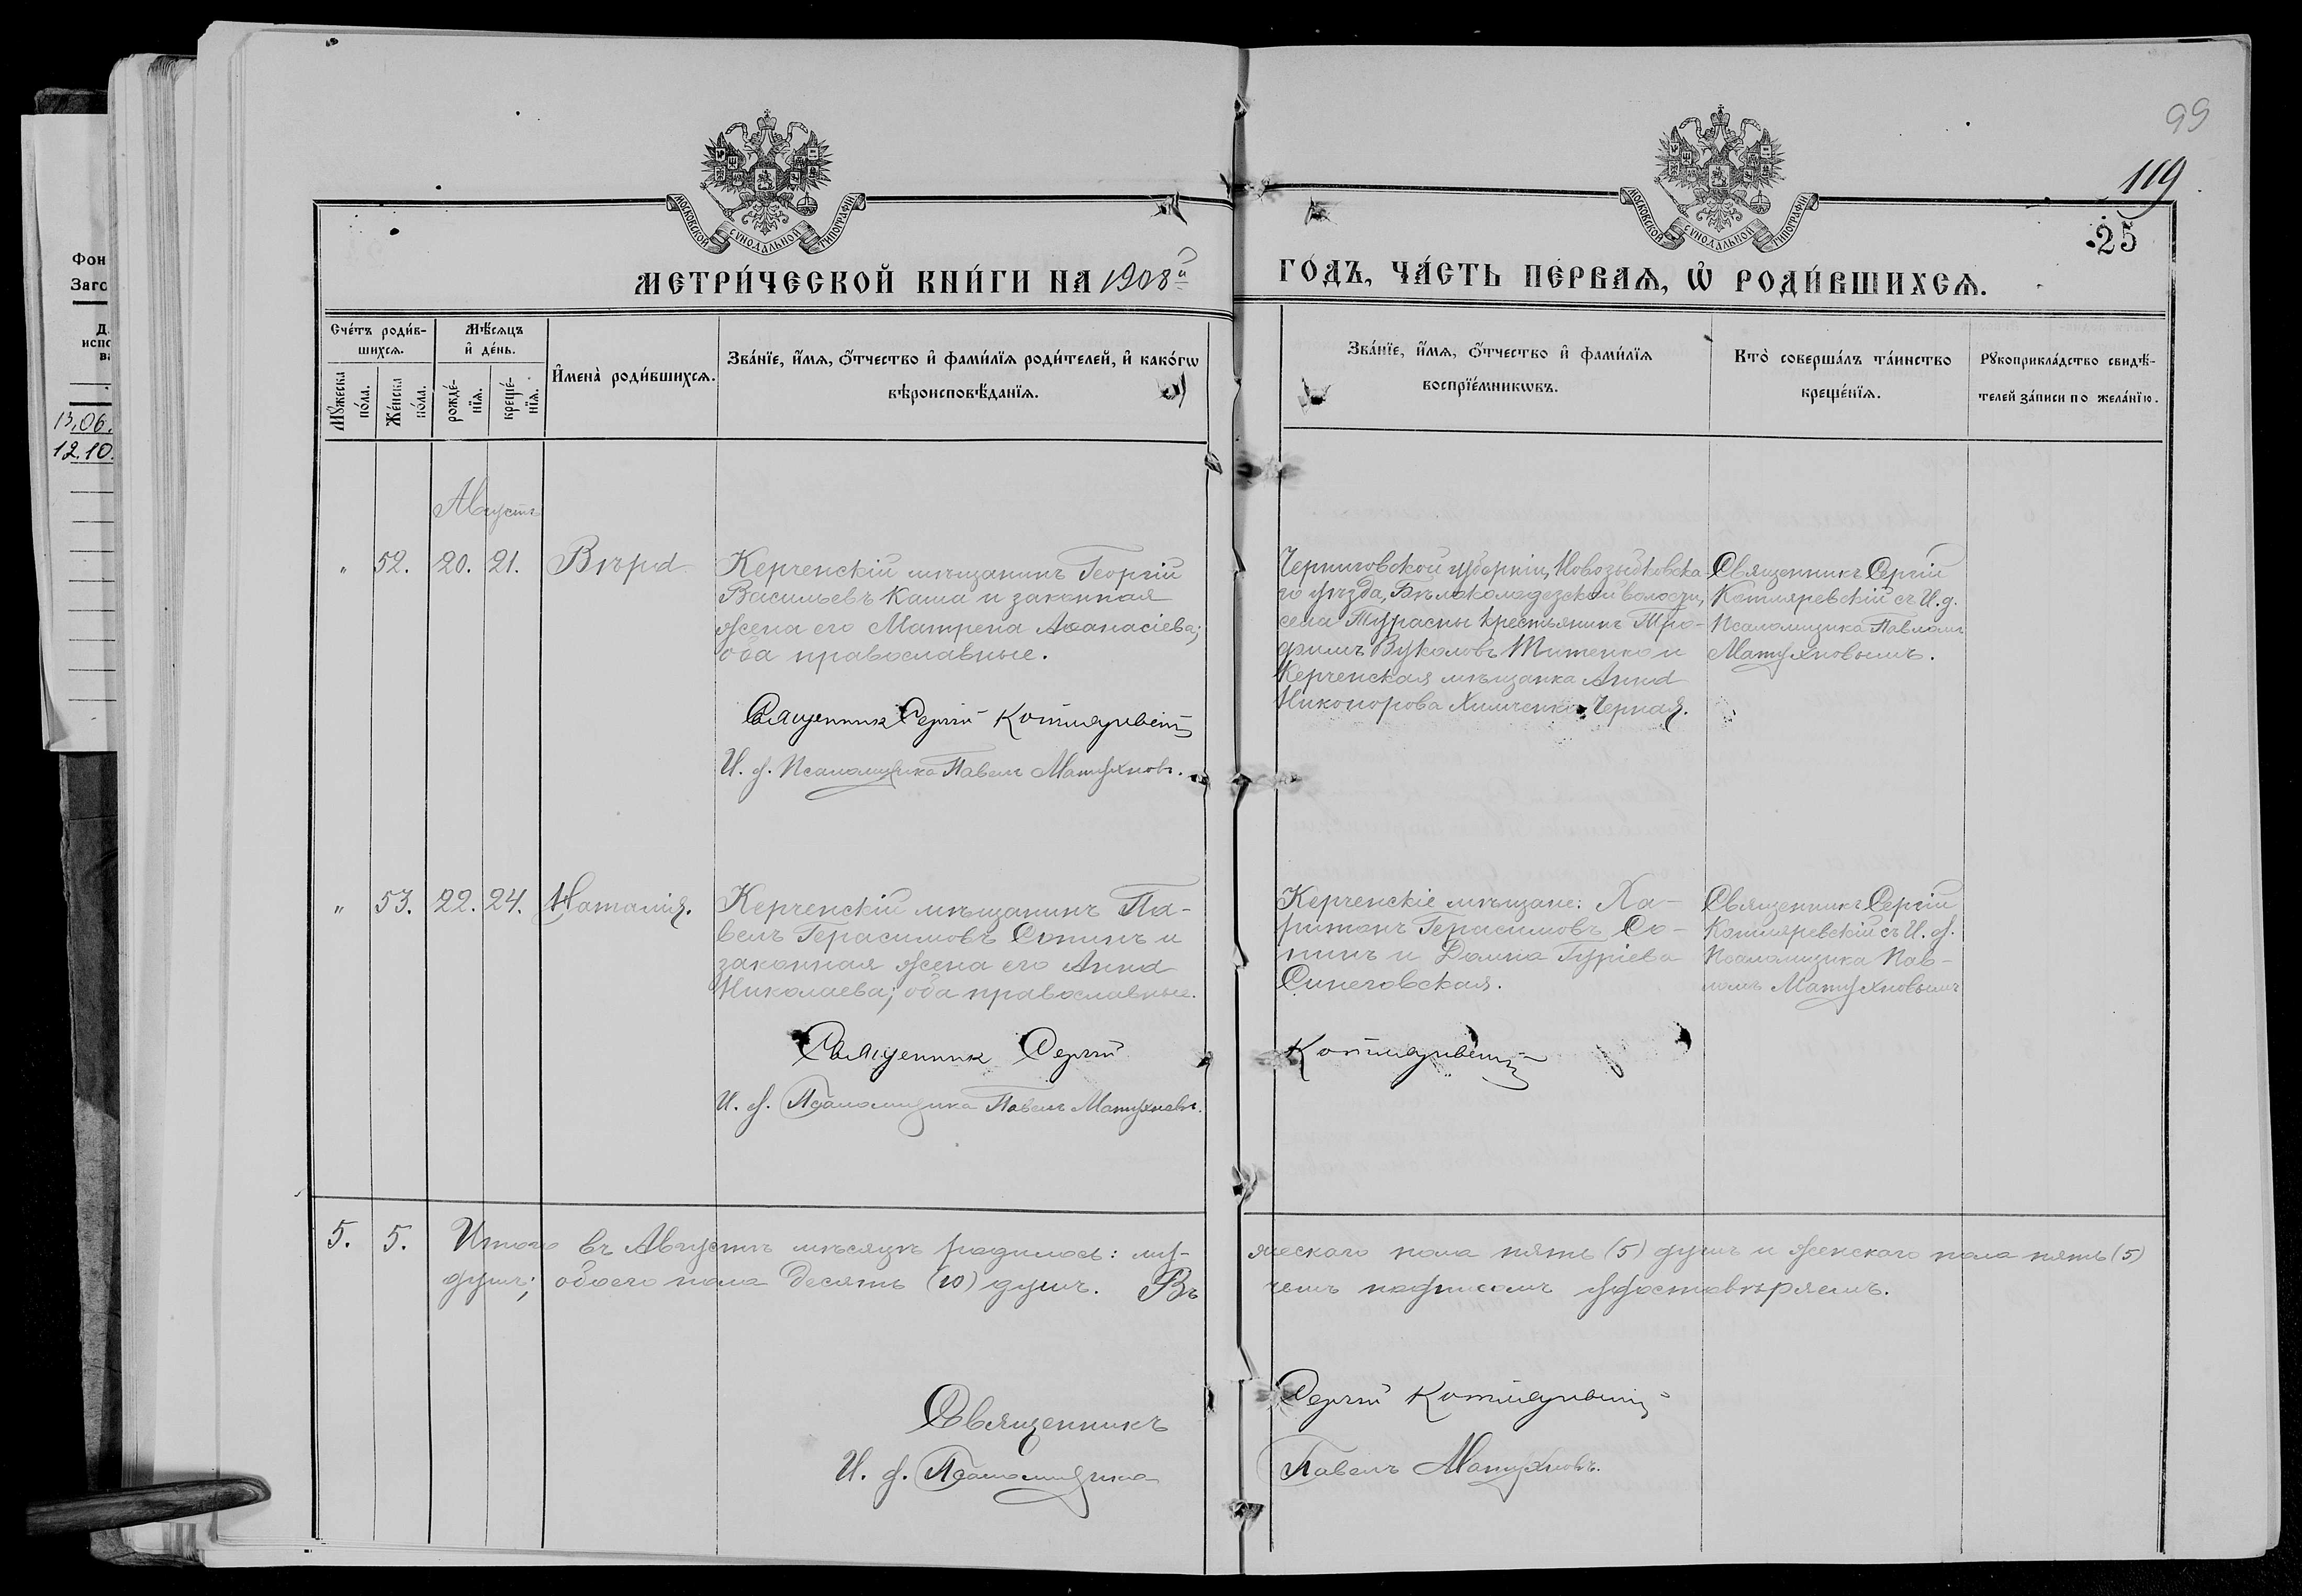 99
119
25
МОСКОВСКОЙ СѴНОДАЛЬНОЙ ТИПОГРАФІИ
МОСКОВСКОЙ СѴНОДАЛЬНОЙ ТИПОГРАФІИ
МЕТРИ́ЧЕСКОЙ КНИ́ГИ НА 1908й
ГО́ДЪ, ЧА́СТЬ ПЕ́РВАЯ, Ѽ РОДИ́ВШИХСѦ.
Сче́тъ роди́в-
шихсѧ.
Мꙋ́жеска по́ла.
Же́нска по́ла.
Мѣ́сѧцъ
и҆ де́нь.
рожде́-
нїѧ.
креще́-
нїѧ.
И҆мена̀ роди́вшихсѧ.
Зва́нїе, и҆́мѧ, ѻ҆́тчество и҆ фами́лїѧ роди́телей, и҆ како́гѡ
вѣроисповѣ́данїѧ.
Зва́нїе, и҆́мѧ, ѻ҆́тчество и҆ фами́лїѧ
воспрїе́мникѡвъ.
Кто̀ соверша́лъ та́инство
креще́нїѧ.
Рꙋкоприкла́дство свидѣ́-
телей за́писи по жела́нїю.
Фон
Заго
13.06.
12.10.
Августъ
" 52. 20. 21. Вѣра
Керченскій мѣщанинъ Георгій
Васильевъ Каша и законная
жена его Матрена Аѳанасіева;
оба православные.
Священник Сергій Котляревскій
И. д. Псаломщика Павелъ Матухновъ.
Черниговской губерніи, Новозыбковска-
го уѣзда, Бѣлоколодезской волости,
села Турасны крестьянинъ Тро-
фимъ Вуколовъ Титенко и
Керченская мѣщанка Анна
Никонорова Химченко-Черная.
Священникъ Сергій
Котляревскій съ И. д.
Псаломщика Павломъ
Матухновымъ.
" 53. 22. 24. Наталія.
Керченскій мѣщанинъ Па-
велъ Герасимовъ Сопинъ и
законная жена его Анна
Николаева; оба православные.
Священник Сергій
Котляревскій
И. д. Псаломщика Павелъ Матухновъ.
Керченскіе мѣщане: Ха-
ритонъ Герасимовъ Со-
пинъ и Домна Гуріева
Синеговская.
Священникъ Сергій
Котляревскій съ И. д.
Псаломщика Пав-
ломъ Матухновымъ
5. 5. Итого въ Августѣ мѣсяцѣ родилось: му-
жескаго пола пять (5) душъ и женскаго пола пять (5)
душъ; обоего пола десять (10) душъ. Въ
чемъ подписомъ удостовѣряемъ.
Священникъ
Сергій Котляревскій
И. д. Псаломщика
Павелъ Матухновъ.